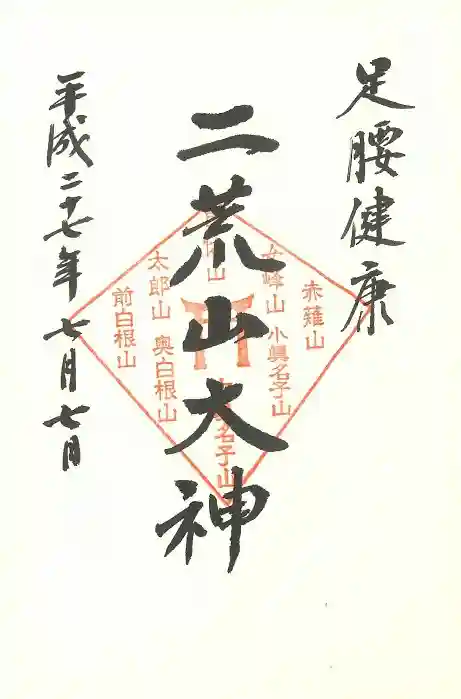 足腰健康
二荒山大神
平成二十七年七月七日
赤薙山
女峰山
小眞名子山
名子山
太郎山
奥白根山
前白根山